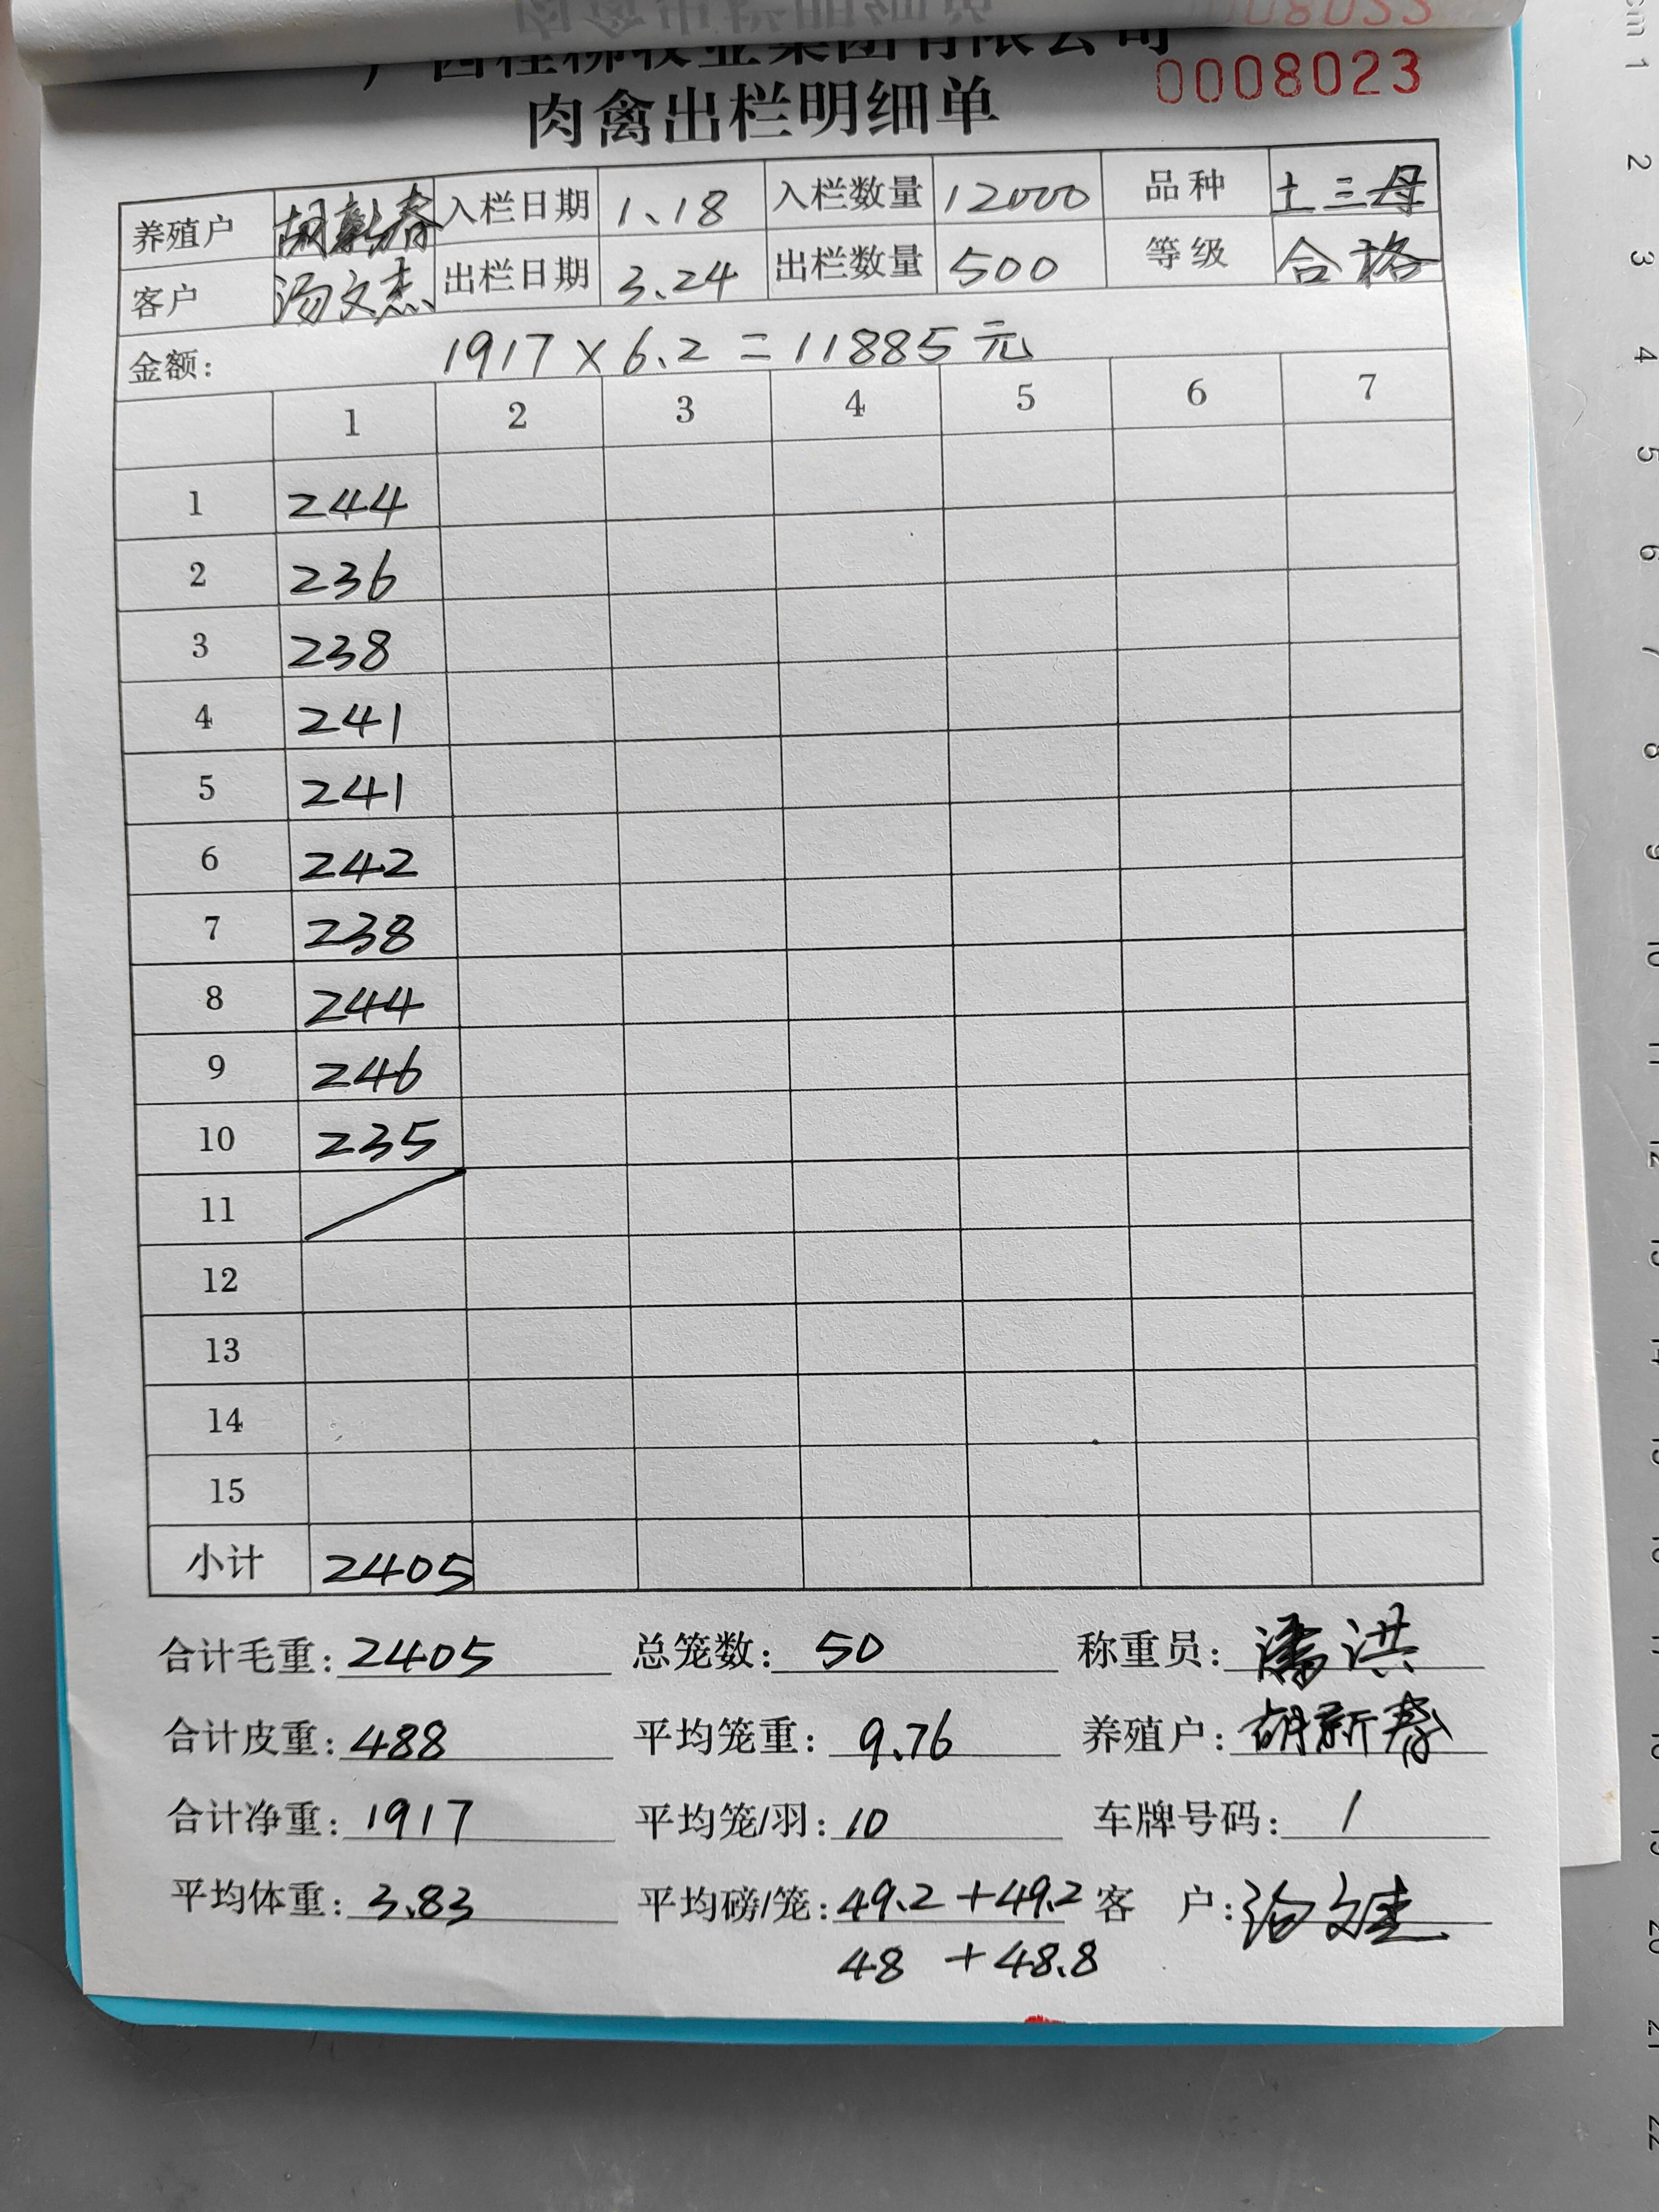 广西桂柳牧业集团有限公司
肉禽出栏明细单 0008023
养殖户 胡新春 入栏日期 1.18 入栏数量 12000 品种 土三母
客户 汤文杰 出栏日期 3.24 出栏数量 500 等级 合格
金额: 1917×6.2=11885元
1 2 3 4 5 6 7
1 244
2 236
3 238
4 241
5 241
6 242
7 238
8 244
9 246
10 235
11
12
13
14
15
小计 2405
合计毛重: 2405 总笼数: 50 称重员: 潘洪
合计皮重: 488 平均笼重: 9.76 养殖户: 胡新春
合计净重: 1917 平均笼/羽: 10 车牌号码: /
平均体重: 3.83 平均磅/笼: 49.2+49.2 客户: 汤文杰
48+48.8
cm 1 2 3 4 5 6 7 8 9 10 11 12 13 14 15 16 17 18 19 20 21 22